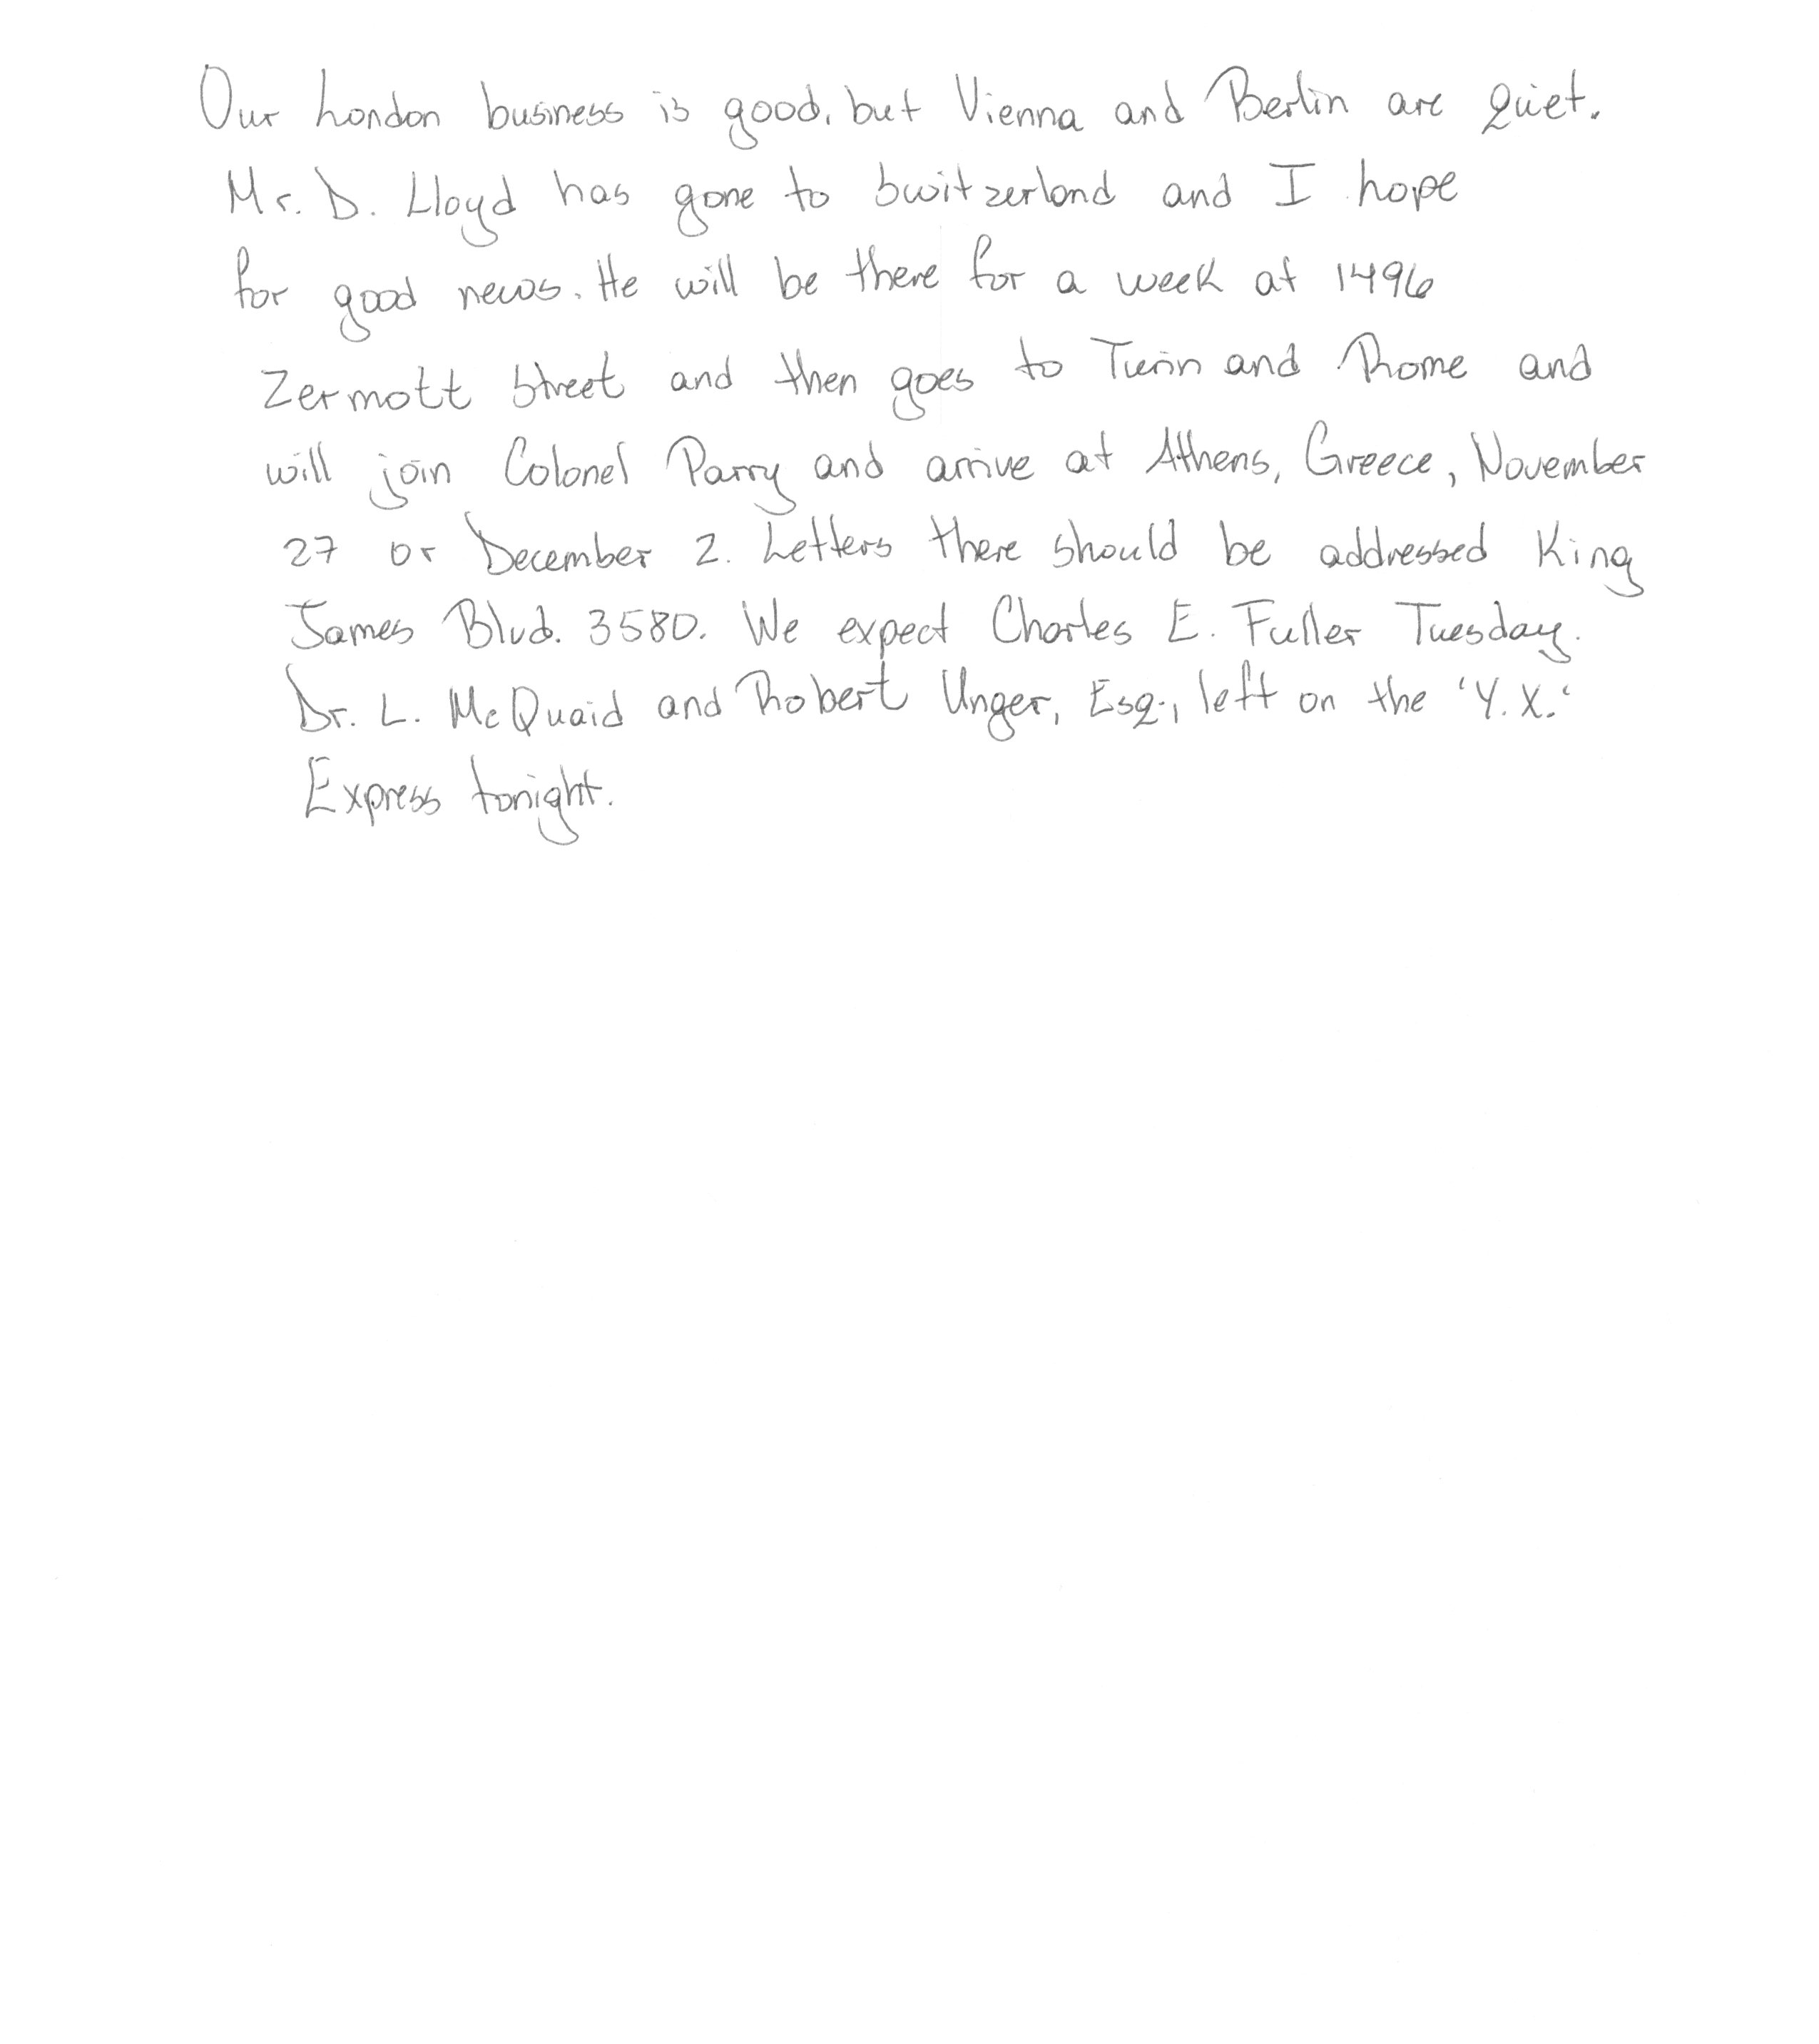 Our London business is good, but Vienna and Berlin are quiet.
Mr. D. Lloyd has gone to Switzerland and I hope
for good news. He will be there for a week at 1496
Zermott Street and then goes to Turin and Rome and
will join Colonel Parry and arrive at Athens, Greece, November
27 or December 2. Letters there should be addressed King
James Blvd. 3580. We expect Charles E. Fuller Tuesday.
Dr. L. McQuaid and Robert Unger, Esq., left on the 'Y.X.'
Express tonight.